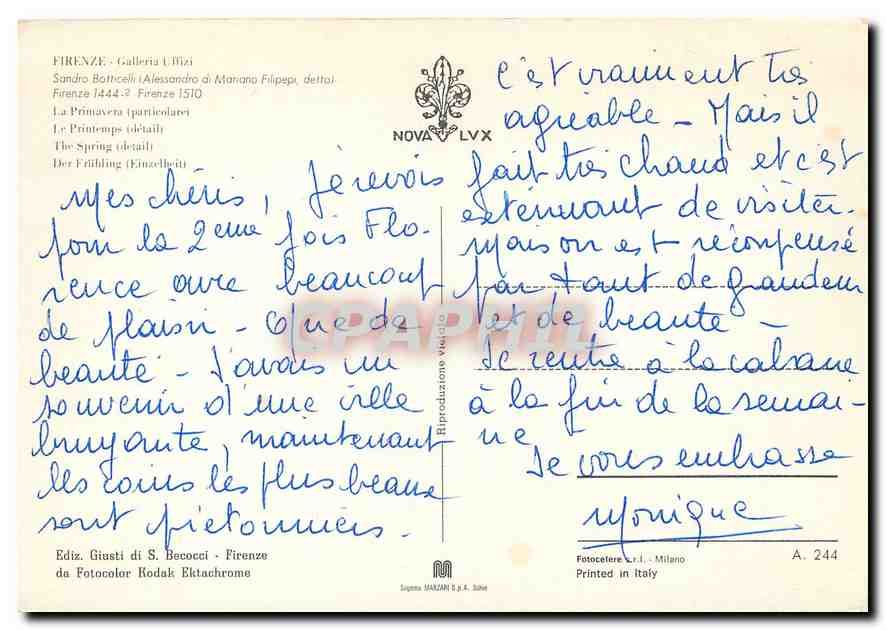 FIRENZE - Galleria Uffizi
Sandro Botticelli (Alessandro di Mariano Filipepi, detto)
Firenze 1444-? Firenze 1510
La Primavera (particolare)
Le Printemps (détail)
The Spring (detail)
Der Frühling (Einzelheit)
NOVA LVX
Mes chéris, je revois
pour la 2ème fois Flo-
rence avec beaucoup
de plaisir - Que de
beauté - J'avais un
souvenir d'une ville
bruyante, maintenant
les coins les plus beaux
sont piétonniers.
c'est vraiment très
agréable - Mais il
fait très chaud et c'est
exténuant de visiter.
Mais on est récompensé
par tant de grandeur
et de beauté -
Je rentre à la cabane
à la fin de la semai-
ne
Je vous embrasse
Monique
CPAPHIL
Riproduzione vietata
Ediz. Giusti di S. Becocci - Firenze
da Fotocolor Kodak Ektachrome
Sagoma MARZARI S.p.A. Schio
Fotocelere s.r.l. - Milano
Printed in Italy
A. 244